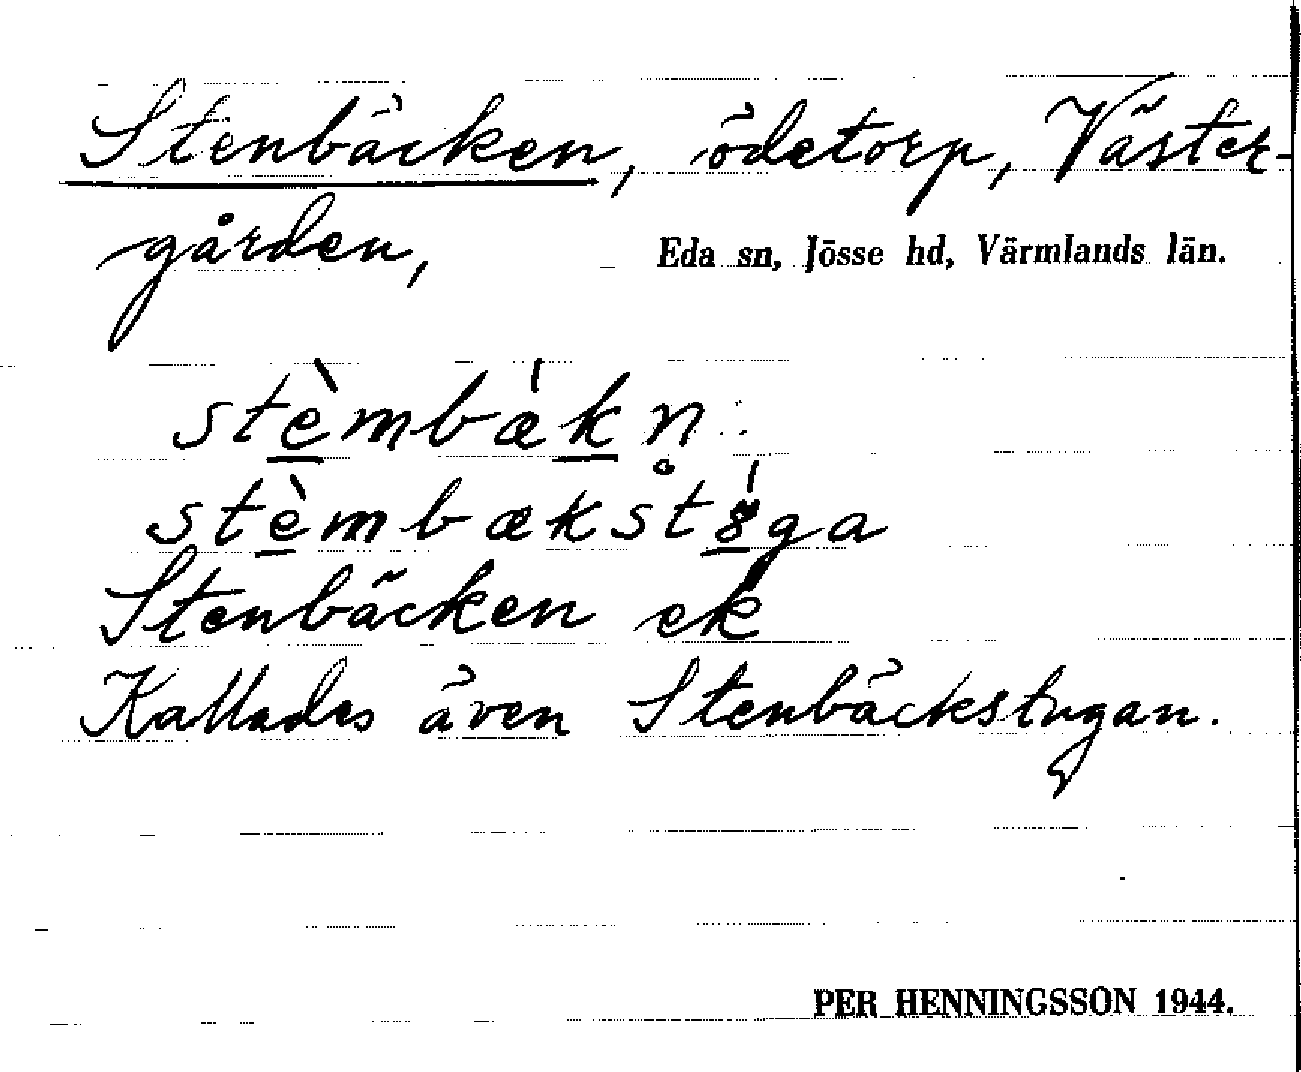 Stenbäcken, ödetorp, Väster-
gården, Eda sn, Jösse hd, Värmlands län.
stè̲mbæ̍k̲n̥
stè̲mbækst8̲̍ga
Stenbäcken ek
Kallades även Stenbäckstugan.
PER HENNINGSSON 1944.